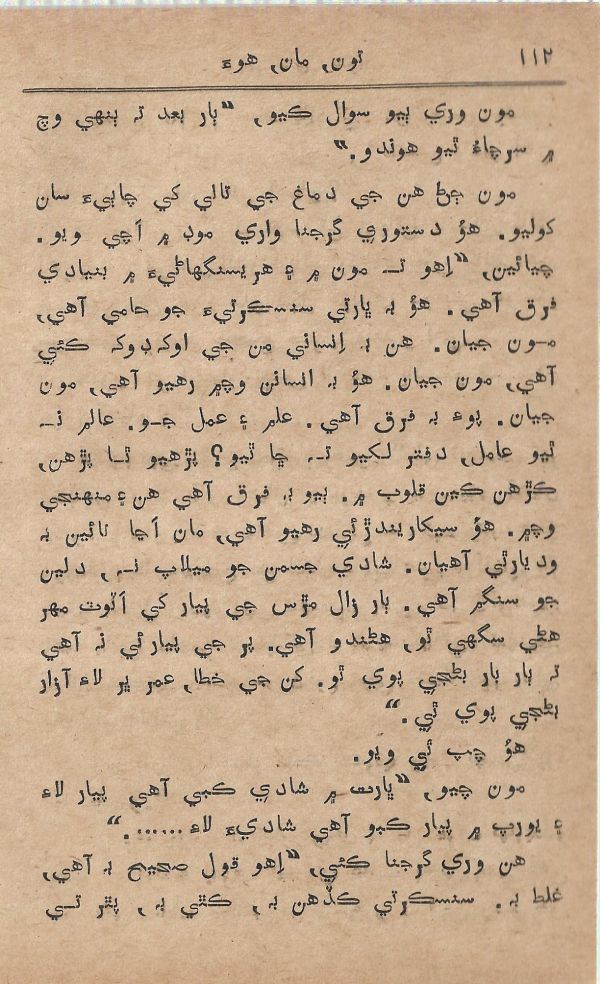 ۱۱۲
تون، مان، هوءَ
مون وري ٻيو سوال ڪيو، “ٻار بعد تہ ٻنهي وچ
۾ سرچاءُ ٿيو هوندو.”
مون ڄڻ هن جي دماغ جي تالي کي چاٻيءَ سان
کوليو. هؤ دستوري گرجنا واري موڊ ۾ اَچي ويو.
چيائين، “اِهو ئـ مون ۾ ۽ هريسنگهاڻيءَ ۾ بنيادي
فرق آهي. هؤ بہ ڀارتي سنسڪرتيءَ جو حامي آهي،
مـون جيان. هن بہ اِنساني من جي اوک ڊوک ڪئي
آهي، مون جيان. هؤ بہ انسانن وچ۾ رهيو آهي، مون
جيان. پوءِ بہ فرق آهي. علم ۽ عمل جـو. عالم تـ
ٿيو عامل، دفتر لکيو تـہ ڇا ٿيو؟ پڙهيو ٿـا پڙهن،
ڪڙهن ڪين قلوب ۾. ٻيو بہ فرق آهي هن ۽ منهنجي
وچ۾. هؤ سيکاريندڙ ئي رهيو آهي، مان اَڃا تائين بہ
وديارٿي آهيان. شادي جسمن جو ميلاپ نـہ، دلين
جو سنگم آهي. ٻار زال مڙس جي پيار کي اَٽوٽ مهر
هڻي سگهي ٿو، هڻندو آهي. پر جي پيار ئي نہ آهي
تہ ٻار بار بڻجي پوي ٿو. کن جي خطا، عمر ڀر لاءِ آزار
بڻجي پوي ٿي.”
هؤ چپ ٿي ويو.
مون چيو، “ڀارت ۾ شادي ڪبي آهي پيار لاءِ
۽ يورپ ۾ پيار ڪبو آهي شاديءَ لاءِ.......”
هن وري گرجنا ڪئي، “اِهو قول صحيح بہ آهي،
غلط بہ. سنسڪرتي ڪڏهن بہ، ڪٿي بہ، پٿر ٿـي